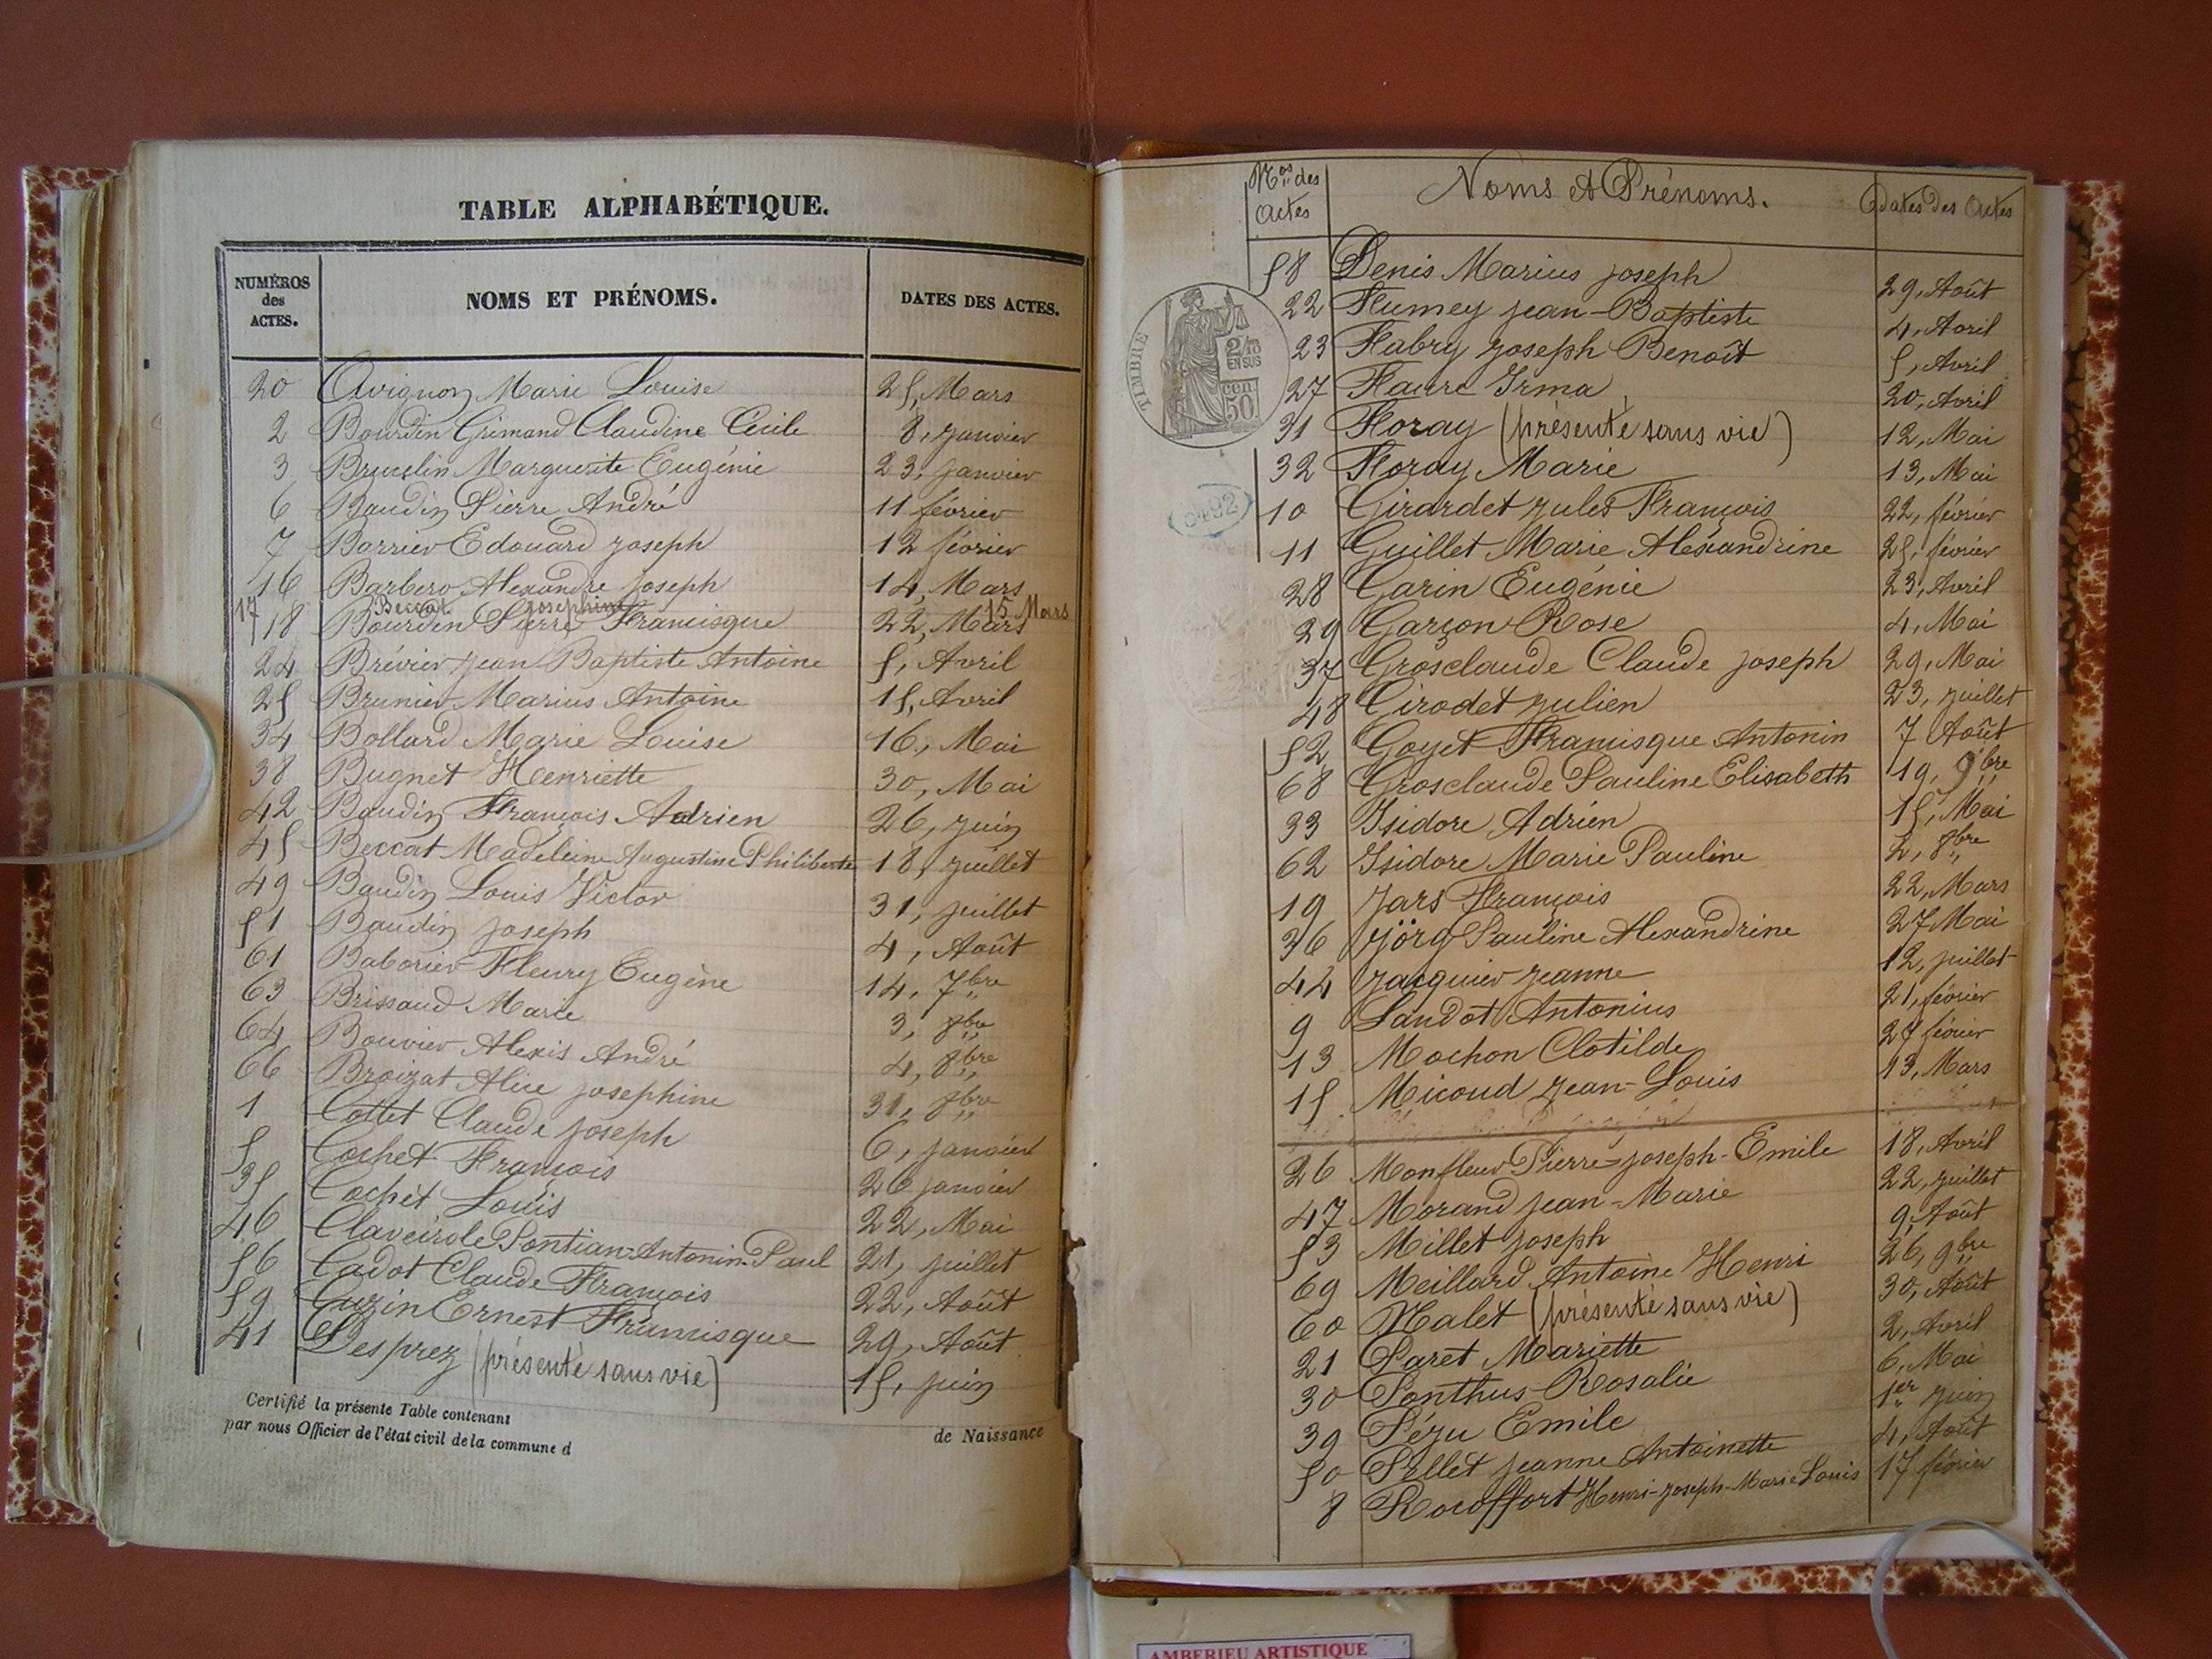 TABLE ALPHABÉTIQUE.
NUMÉROS des ACTES. NOMS ET PRÉNOMS. DATES DES ACTES.
20 Avignon Marie Louise 25, Mars
2 Bourdin Grimand Claudine Cécile 8, janvier
3 Bruselin Marguerite Eugénie 23, janvier
6 Baudin Pierre André 11 février
7 Borrier Edouard joseph 12 février
16 Barbero Alexandre joseph 14, Mars
17 Beccat josephine 15 Mars
18 Bourdin Pierre Francisque 22, Mars
24 Brévier jean Baptiste Antoine 5, Avril
25 Brunier Marius Antoine 15, Avril
34 Bollard Marie Louise 16, Mai
38 Bugnet Henriette 30, Mai
42 Baudin François Adrien 26, juin
45 Beccat Madeleine Augustine Philiberte 18, juillet
49 Baudin Louis Victor 31, juillet
51 Baudin joseph 4, Août
61 Baborier Fleury Eugène 14, 7bre
63 Brissaud Marie 3, 8bre
64 Bouvier Alexis André 4, 8bre
66 Broizat Alice josephine 31, 8bre
1 Collet Claude joseph 6, janvier
5 Cochet François 26 janvier
35 Cochet Louis 22, Mai
46 Claveirole Pontian-Antonin-Paul 21, juillet
56 Cadot Claude François 22, Août
59 Cuzin Ernest Francisque 29, Août
41 Desprez (présenté sans vie) 15, juin
Certifié la présente Table contenant de Naissance
par nous Officier de l'état civil de la commune d
Nos des Actes Noms et Prénoms. dates des Actes
58 Denis Marius joseph 29, Août
22 Flumey jean-Baptiste 4, Avril
23 Fabry joseph Benoît 5, Avril
27 Faure Irma 20, Avril
31 Floray (présenté sans vie) 12, Mai
32 Floray Marie 13, Mai
10 Girardet jules François 22, février
11 Guillet Marie Alexandrine 25, février
28 Garin Eugénie 23, Avril
29 Garçon Rose 4, Mai
37 Grosclaude Claude joseph 29, Mai
48 Girodet julien 23, juillet
52 Goyet Francisque Antonin 7 Août
68 Grosclaude Pauline Elisabeth 19, 9bre
33 Isidore Adrien 15, Mai
62 Isidore Marie Pauline 2, 8bre
19 Jars François 22, Mars
36 Jörg Pauline Alexandrine 27 Mai
44 Jacquier jeanne 12, juillet
9 Landot Antonius 21, février
13 Mochon Clotilde février
15 Micoud jean-Louis 13, Mars
26 Monfleur Pierre-joseph-Emile 18, Avril
47 Morand jean-Marie 22, juillet
53 Millet joseph 9, Août
69 Meillard Antoine Henri 26, 9bre
60 Malet (présenté sans vie) 30, Août
21 Paret Mariette 2, Avril
30 Ponthus Rosalie 6, Mai
39 Péju Emile 1er juin
50 Pellet jeanne Antoinette 4, Août
8 Rocoffort Henri-joseph-Marie Louis 17 février
TIMBRE
2/10 EN SUS
cen 50
6492
AMBERIEU ARTISTIQUE